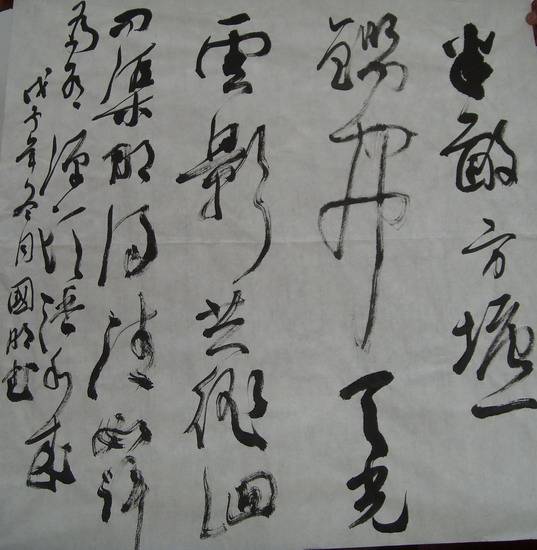 半畝方塘一
鑑開天光
雲影共徘徊
問渠那得清如許
為有源頭活水來
戊子年冬月國明書